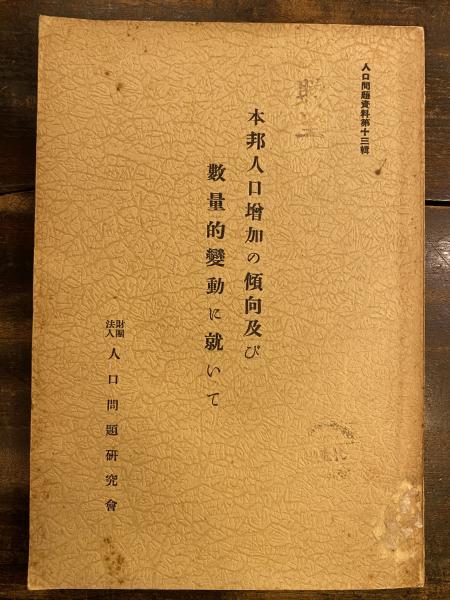 人口問題資料第十三輯
本邦人口增加の傾向及び
數量的變動に就いて
財團
法人
人口問題硏究會